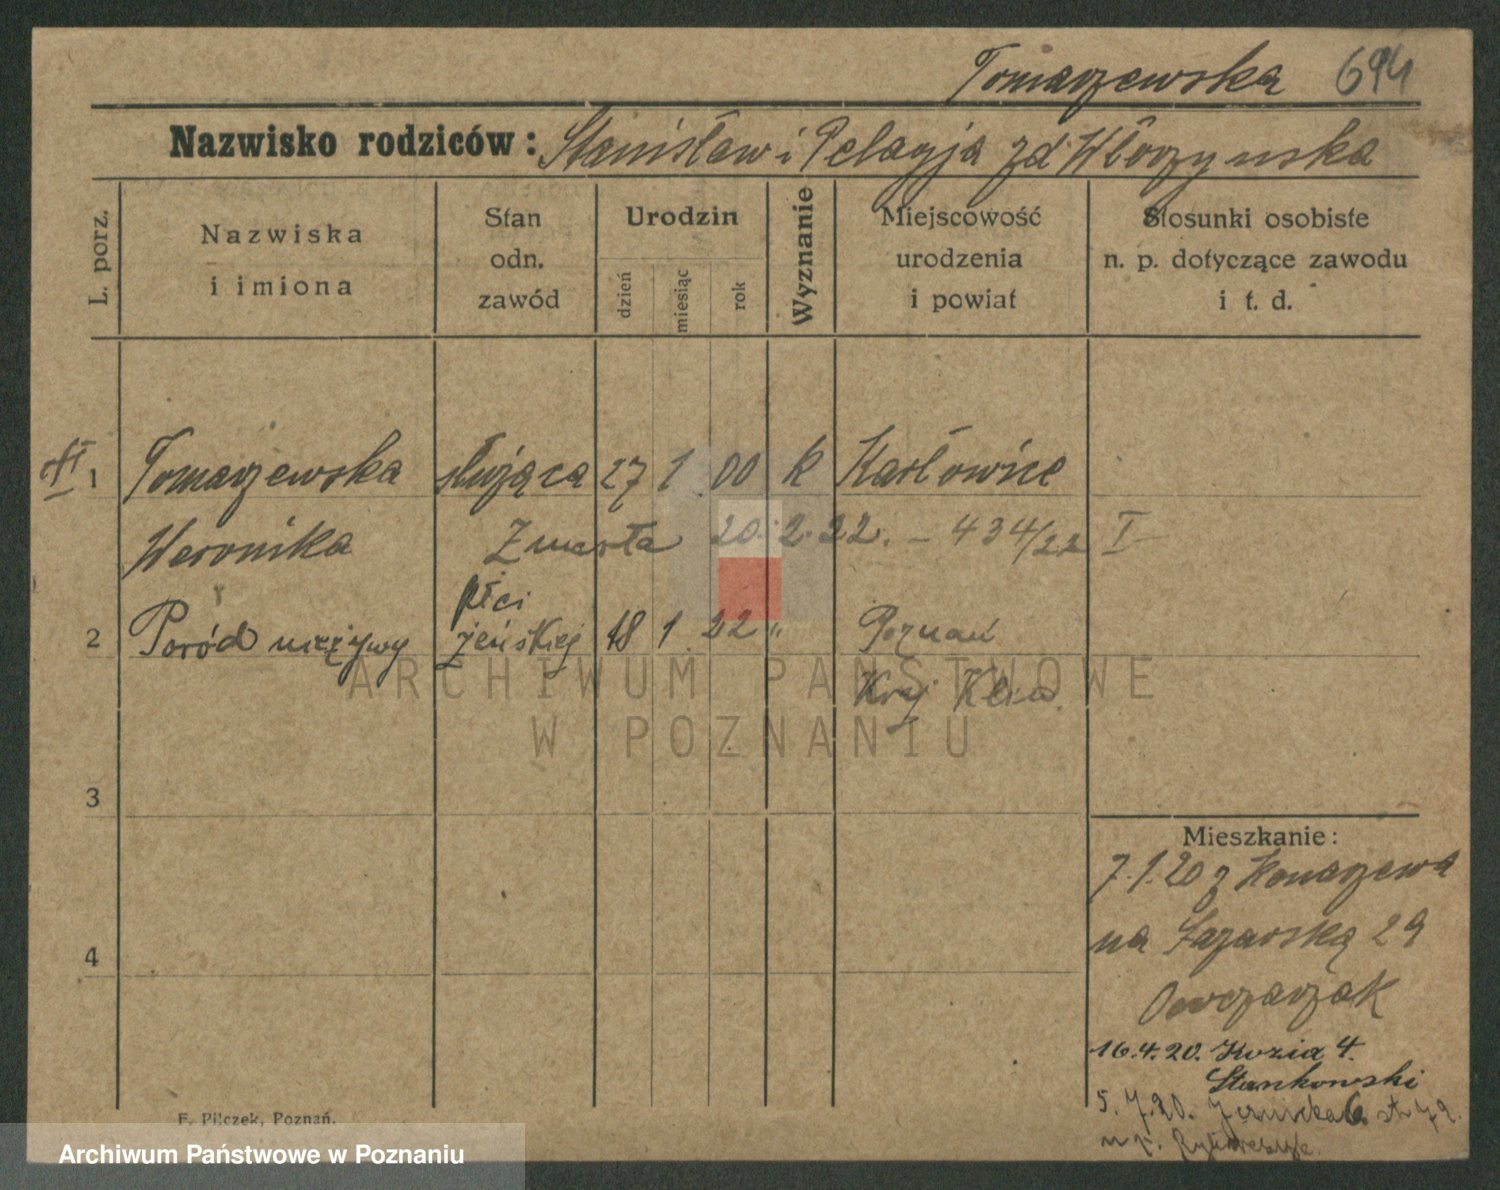 Tomaszewska 694
Nazwisko rodziców: Stanisław i Pelagja zd Włoszynska
L. porz.
Nazwiska
i imiona
Stan
odn.
zawód
Urodzin
dzień
miesiąc
rok
Wyznanie
Miejscowość
urodzenia
i powiat
Stosunki osobiste
n. p. dotyczące zawodu
i t. d.
1 Tomaszewska służąca 27 1 00 k Karłowice
Weronika Zmarła 20.2.22. – 434/22 I
płci
2 Poród nieżywy żeńskiej 18 1 22 " Poznań
Kraj Klin.
3
Mieszkanie:
7.1.20 z Konarzewa
na Łazarską 29
4
Owczarzak
16.4.20. Kozia 4.
Stankowski
5.7.20.
F. Pilczek, Poznań.
ARCHIWUM PAŃSTWOWE
W POZNANIU
Archiwum Państwowe w Poznaniu